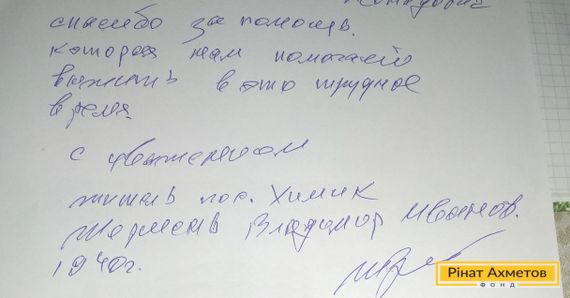 спасибо за помощь.
которая нам помогает
выжить в это трудное
время
с уважением
житель пос. Химик
Владимир Иванов.
1940г.
Рінат Ахметов
ФОНД